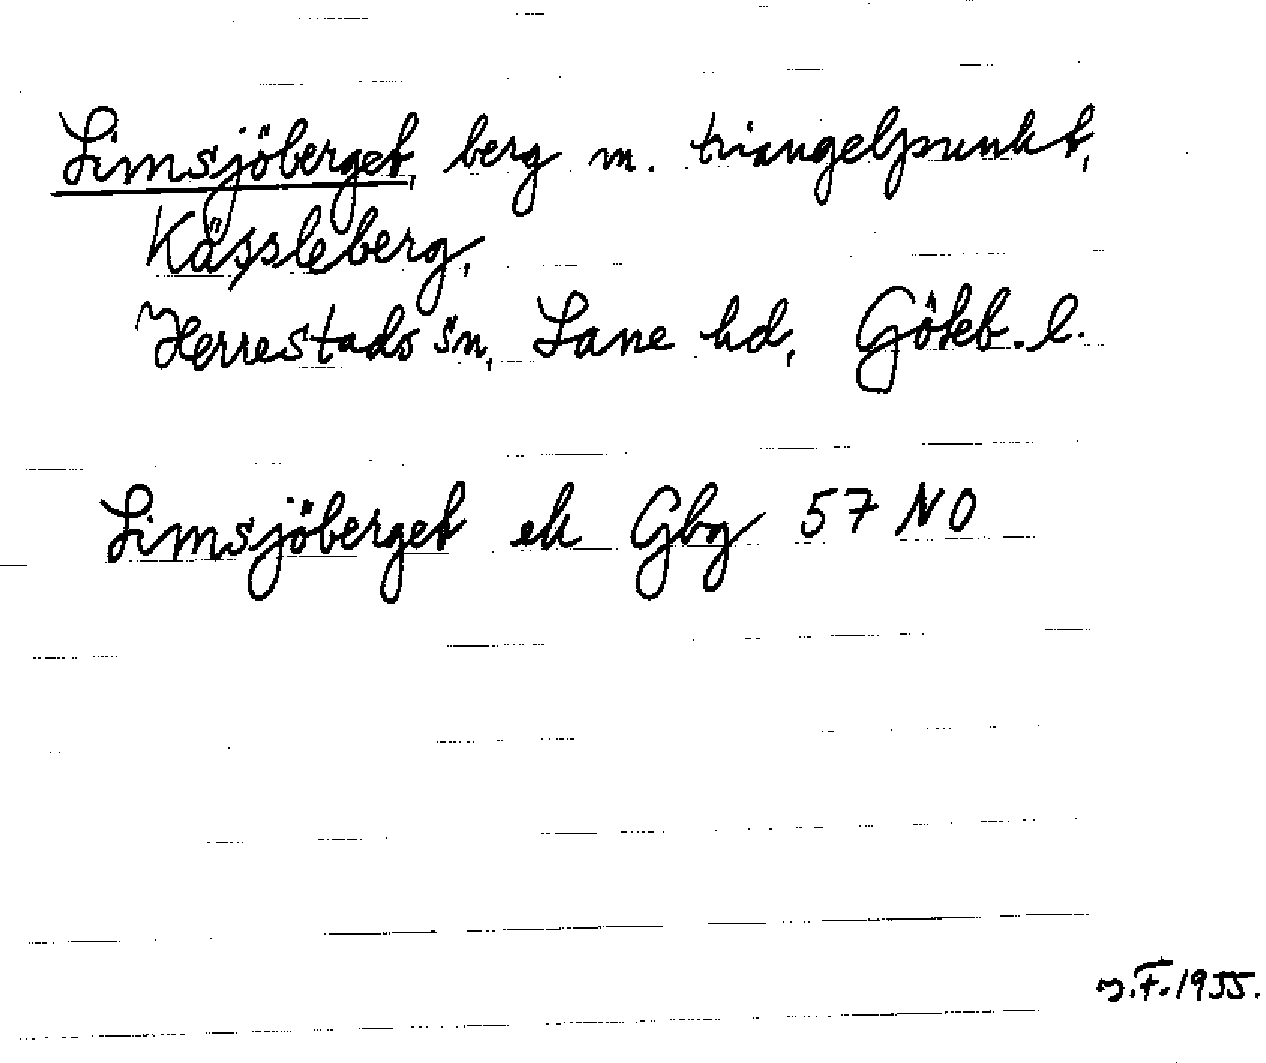 Limsjöberget, berg m. triangelpunkt,
Kässleberg,
Herrestads sn, Lane hd, Göteb. l.
Limsjöberget ek Gbg 57 NO
F. 1955.